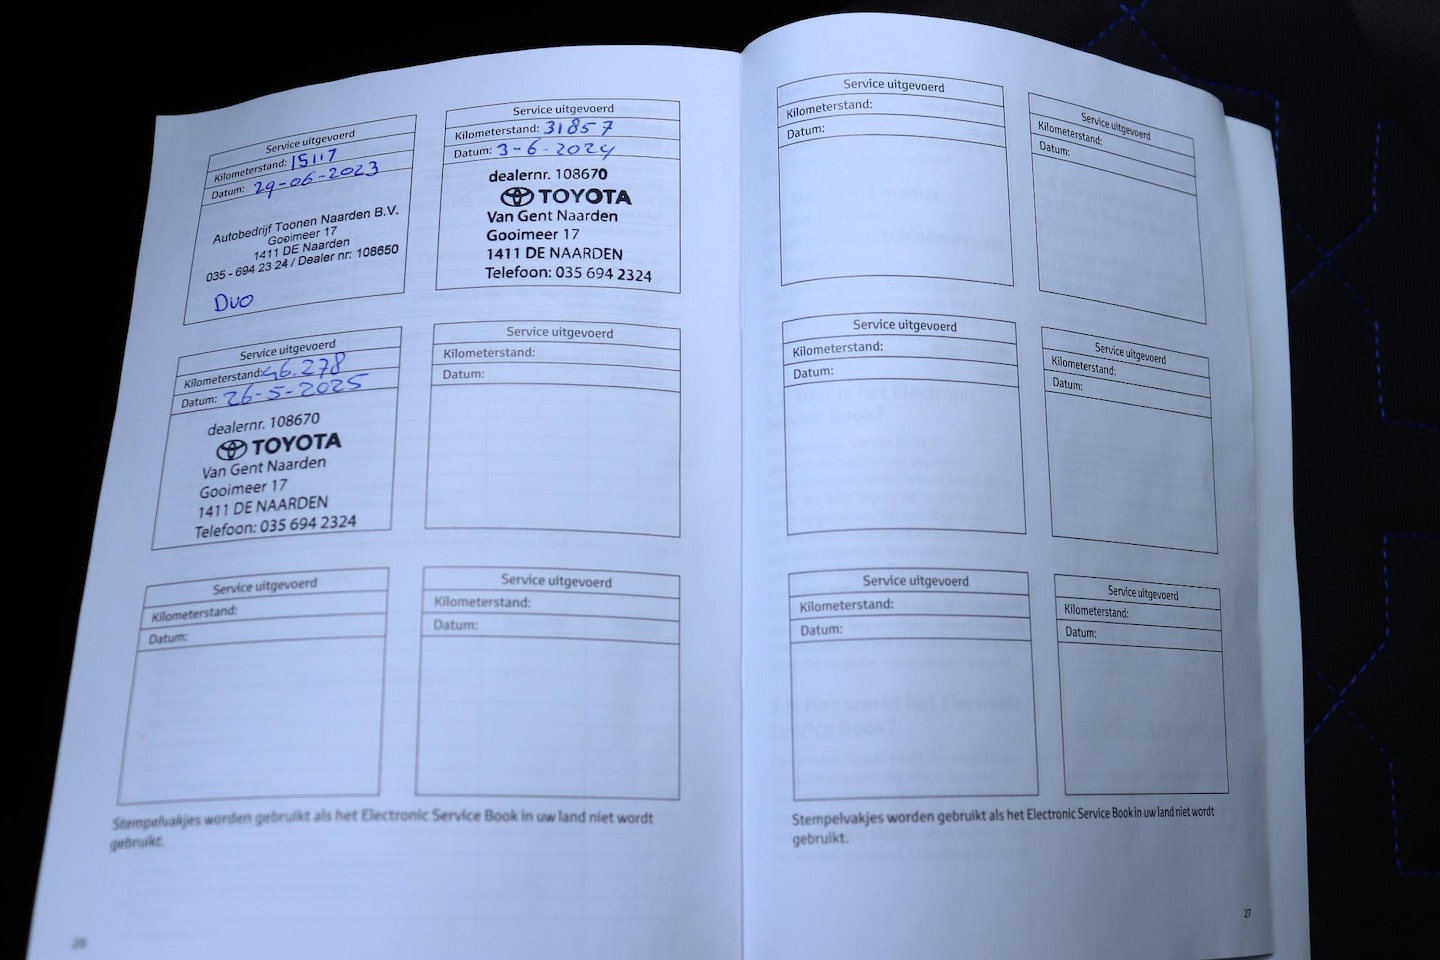 Service uitgevoerd
Kilometerstand: 15117
Datum: 29-06-2023
Autobedrijf Toonen Naarden B.V.
Gooimeer 17
1411 DE Naarden
035 - 694 23 24 / Dealer nr: 108650
Duo
Service uitgevoerd
Kilometerstand: 31857
Datum: 3-6-2024
dealernr. 108670
TOYOTA
Van Gent Naarden
Gooimeer 17
1411 DE NAARDEN
Telefoon: 035 694 2324
Service uitgevoerd
Kilometerstand: 46.278
Datum: 26-5-2025
dealernr. 108670
TOYOTA
Van Gent Naarden
Gooimeer 17
1411 DE NAARDEN
Telefoon: 035 694 2324
Service uitgevoerd
Kilometerstand:
Datum:
Service uitgevoerd
Kilometerstand:
Datum:
Service uitgevoerd
Kilometerstand:
Datum:
Stempelvakjes worden gebruikt als het Electronic Service Book in uw land niet wordt
gebruikt.
26
Service uitgevoerd
Kilometerstand:
Datum:
Service uitgevoerd
Kilometerstand:
Datum:
Service uitgevoerd
Kilometerstand:
Datum:
Service uitgevoerd
Kilometerstand:
Datum:
Service uitgevoerd
Kilometerstand:
Datum:
Service uitgevoerd
Kilometerstand:
Datum:
Stempelvakjes worden gebruikt als het Electronic Service Book in uw land niet wordt
gebruikt.
27